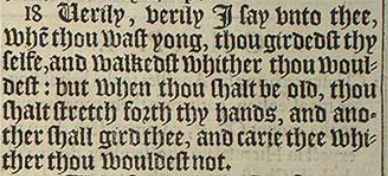 18 Uerily, verily I say vnto thee,
whẽ thou wast yong, thou girdedst thy
selfe, and walkedst whither thou woul-
dest: but when thou shalt be old, thou
shalt stretch forth thy hands, and ano-
ther shall gird thee, and carie thee whi-
ther thou wouldest not.